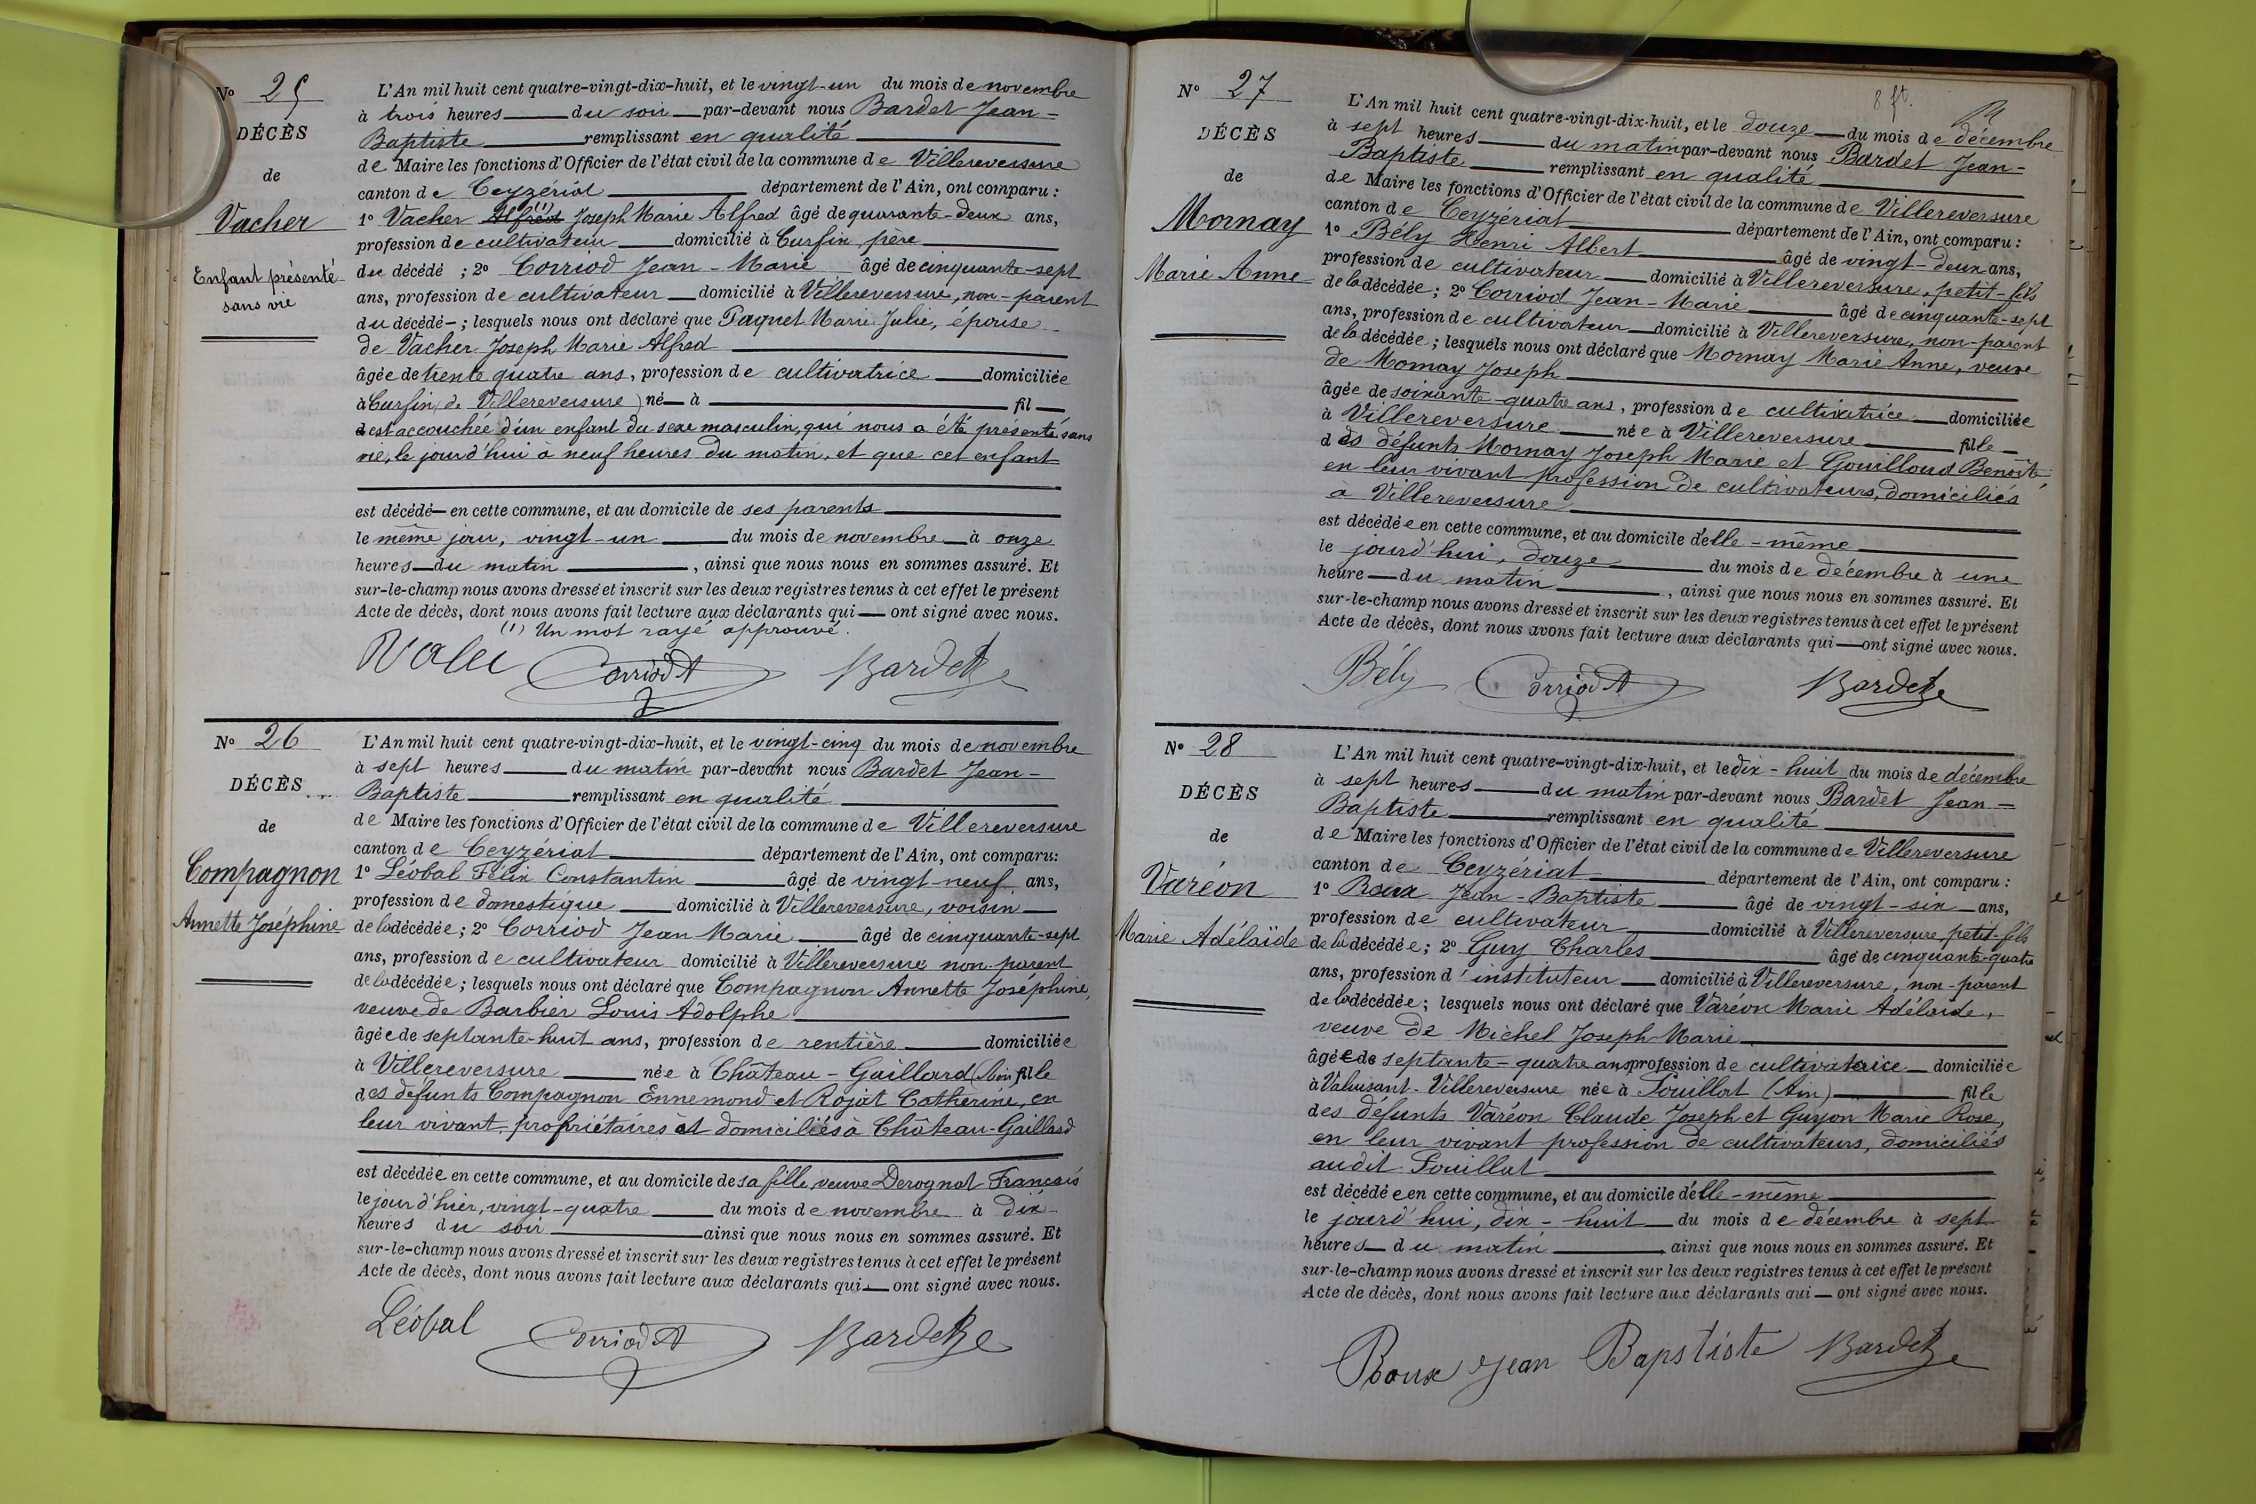 Nº 25
DÉCÈS
de
Vacher
Enfant présenté
sans vie
L'An mil huit cent quatre-vingt-dix-huit, et le vingt-un du mois de novembre
à trois heures du soir par-devant nous Bardet Jean-
Baptiste remplissant en qualité
de Maire les fonctions d'Officier de l'état civil de la commune de Villereversure
canton de Ceyzériat département de l'Ain, ont comparu :
1º Vacher Alfred (1) Joseph Marie Alfred âgé de quarante-deux ans,
profession de cultivateur domicilié à Curfin père
du décédé ; 2º Corriod Jean-Marie âgé de cinquante-sept
ans, profession de cultivateur domicilié à Villereversure, non-parent
du décédé ; lesquels nous ont déclaré que Paquet Marie Julie, épouse
de Vacher Joseph Marie Alfred
âgée de trente quatre ans, profession de cultivatrice domiciliée
à Curfin (de Villereversure) né à fil
est accouchée d'un enfant du sexe masculin, qui nous a été présenté sans
vie, le jourd'hui à neuf heures du matin, et que cet enfant
est décédé en cette commune, et au domicile de ses parents
le même jour, vingt-un du mois de novembre à onze
heures du matin, ainsi que nous nous en sommes assuré. Et
sur-le-champ nous avons dressé et inscrit sur les deux registres tenus à cet effet le présent
Acte de décès, dont nous avons fait lecture aux déclarants qui ont signé avec nous.
(1) Un mot rayé approuvé.
Corriod Bardet
Nº 26
DÉCÈS
de
Compagnon
Annette Joséphine
L'An mil huit cent quatre-vingt-dix-huit, et le vingt-cinq du mois de novembre
à sept heures du matin par-devant nous Bardet Jean-
Baptiste remplissant en qualité
de Maire les fonctions d'Officier de l'état civil de la commune de Villereversure
canton de Ceyzériat département de l'Ain, ont comparu:
1º Léobal Félix Constantin âgé de vingt-neuf ans,
profession de domestique domicilié à Villereversure, voisin
de la décédée; 2º Corriod Jean Marie âgé de cinquante-sept
ans, profession de cultivateur domicilié à Villereversure non-parent
de la décédée; lesquels nous ont déclaré que Compagnon Annette Joséphine,
veuve de Barbier Louis Adolphe
âgée de septante-huit ans, profession de rentière domiciliée
à Villereversure née à Château-Gaillard (Ain) fille
des défunts Compagnon Ennemond et Rojat Catherine, en
leur vivant propriétaires et domiciliés à Château-Gaillard
est décédée en cette commune, et au domicile de sa fille veuve Derognat François
le jourd'hier, vingt-quatre du mois de novembre à dix
heures du soir ainsi que nous nous en sommes assuré. Et
sur-le-champ nous avons dressé et inscrit sur les deux registres tenus à cet effet le présent
Acte de décès, dont nous avons fait lecture aux déclarants qui ont signé avec nous.
Léobal Corriod Bardet
8 ft.
Nº 27
DÉCÈS
de
Mornay
Marie Anne
L'An mil huit cent quatre-vingt-dix-huit, et le douze du mois de décembre
à sept heures du matin par-devant nous Bardet Jean-
Baptiste remplissant en qualité
de Maire les fonctions d'Officier de l'état civil de la commune de Villereversure
canton de Ceyzériat département de l'Ain, ont comparu :
1º Bély Henri Albert âgé de vingt-deux ans,
profession de cultivateur domicilié à Villereversure, petit-fils
de la décédée; 2º Corriod Jean-Marie âgé de cinquante-sept
ans, profession de cultivateur domicilié à Villereversure, non-parent
de la décédée; lesquels nous ont déclaré que Mornay Marie Anne, veuve
de Mornay Joseph
âgée de soixante-quatre ans, profession de cultivatrice domiciliée
à Villereversure née à Villereversure fille
des défunts Mornay Joseph Marie et Gouilloud Benoîte,
en leur vivant profession de cultivateurs, domiciliés
à Villereversure
est décédée en cette commune, et au domicile d'elle-même
le jourd'hui, douze du mois de décembre à une
heure du matin, ainsi que nous nous en sommes assuré. Et
sur-le-champ nous avons dressé et inscrit sur les deux registres tenus à cet effet le présent
Acte de décès, dont nous avons fait lecture aux déclarants qui ont signé avec nous.
Bély Corriod Bardet
Nº 28
DÉCÈS
de
Varéon
Marie Adélaïde
L'An mil huit cent quatre-vingt-dix-huit, et le dix-huit du mois de décembre
à sept heures du matin par-devant nous Bardet Jean-
Baptiste remplissant en qualité
de Maire les fonctions d'Officier de l'état civil de la commune de Villereversure
canton de Ceyzériat département de l'Ain, ont comparu :
1º Roux Jean-Baptiste âgé de vingt-six ans,
profession de cultivateur domicilié à Villereversure, petit-fils
de la décédée; 2º Guy Charles âgé de cinquante-quatre
ans, profession d'instituteur domicilié à Villereversure, non-parent
de la décédée; lesquels nous ont déclaré que Varéon Marie Adélaïde,
veuve de Michel Joseph Marie
âgée de septante-quatre ans profession de cultivatrice domiciliée
à Valuisant-Villereversure née à Pouillat (Ain) fille
des défunts Varéon Claude Joseph et Guyon Marie Rose,
en leur vivant profession de cultivateurs, domiciliés
audit Pouillat
est décédée en cette commune, et au domicile d'elle-même
le jourd'hui, dix-huit du mois de décembre à sept
heures du matin ainsi que nous nous en sommes assuré. Et
sur-le-champ nous avons dressé et inscrit sur les deux registres tenus à cet effet le présent
Acte de décès, dont nous avons fait lecture aux déclarants qui ont signé avec nous.
Roux Jean Bapstiste Bardet